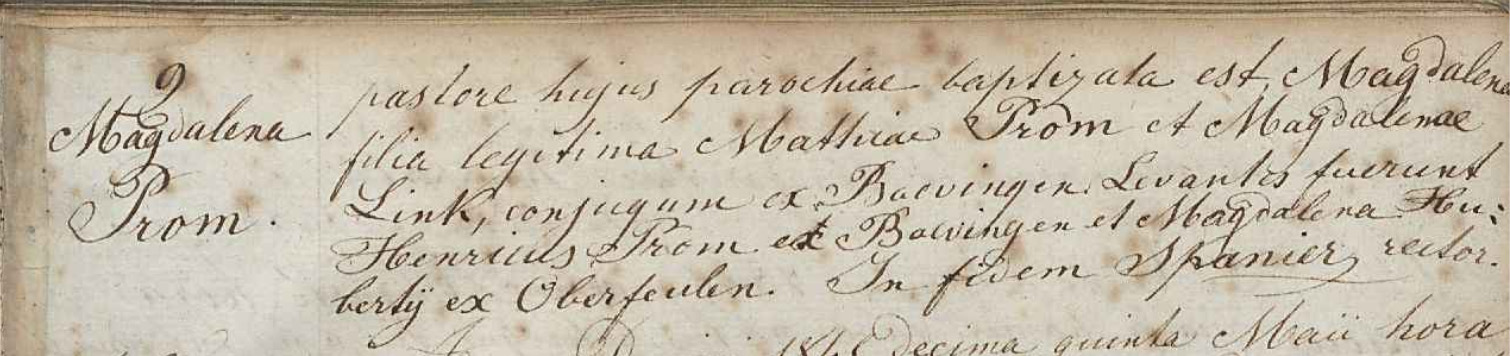 9
Magdalena
Prom.
pastore hujus parochiae baptizata est Magdalena
filia legitima Mathiae Prom et Magdalenae
Link, conjugum ex Baevingen. Levantes fuerunt
Henricus Prom ex Baevingen et Magdalena Hu:
bertÿ ex Oberfeulen. In fidem Spanier, rector.
decima quinta Maii hora